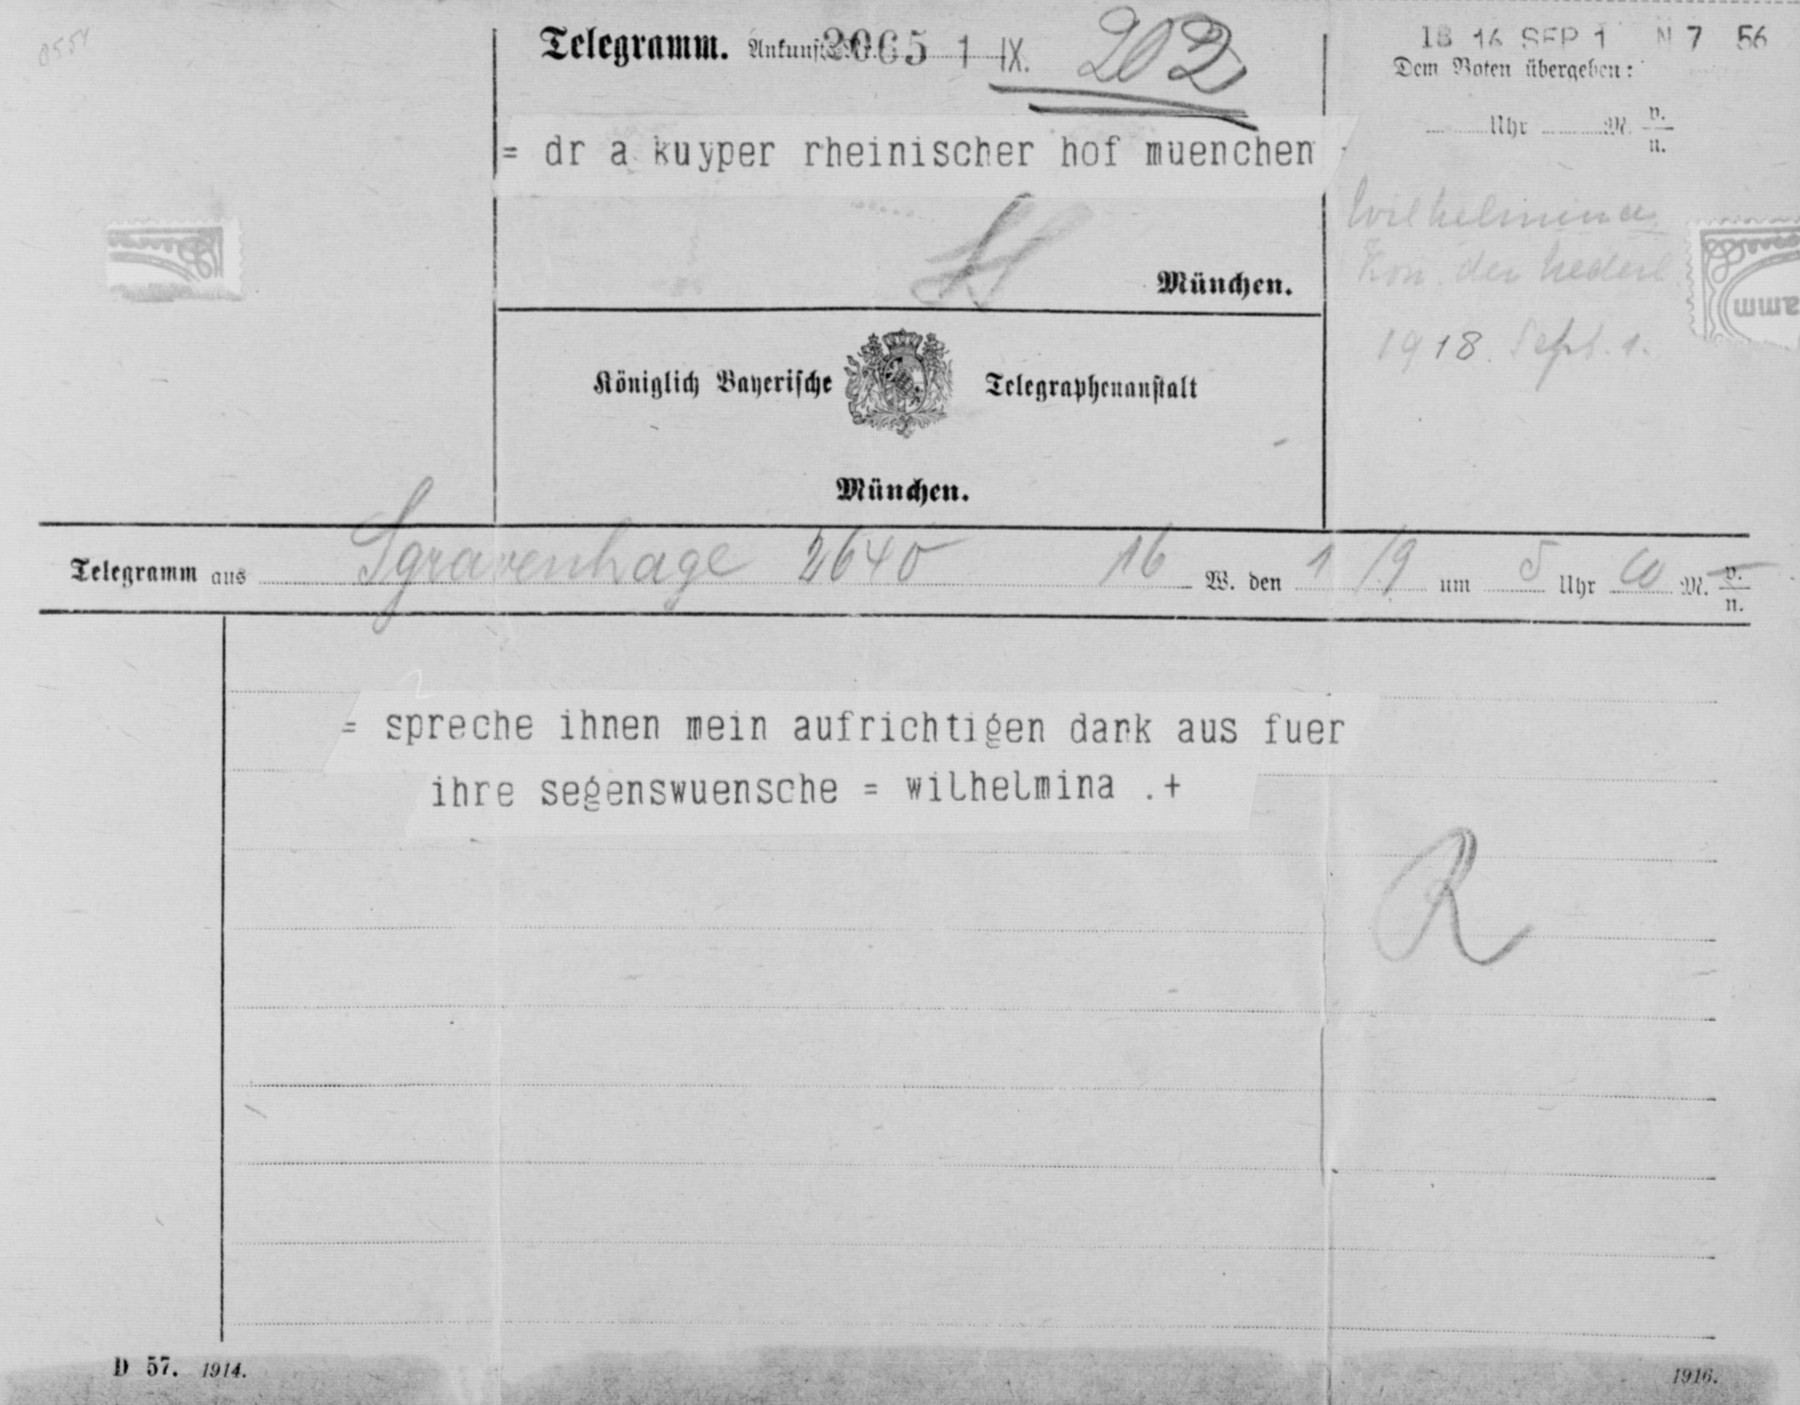 Telegramm. Ankunfts-Nr. 2065 1 IX. 202
= dr a kuyper rheinischer hof muenchen
München.
Königlich Bayerische Telegraphenanstalt
München.
16 SEP 1 N 7 56
Dem Boten übergeben:
Uhr M. v./n.
Wilhelmina
Kon. der Nederl
1918. Sept. 1.
amm
Telegramm aus Sgravenhage 2640 16 W. den 1/9 um 5 Uhr M. v./n.
= spreche ihnen mein aufrichtigen dank aus fuer
ihre segenswuensche = wilhelmina .+
R
D 57. 1914.
1916.